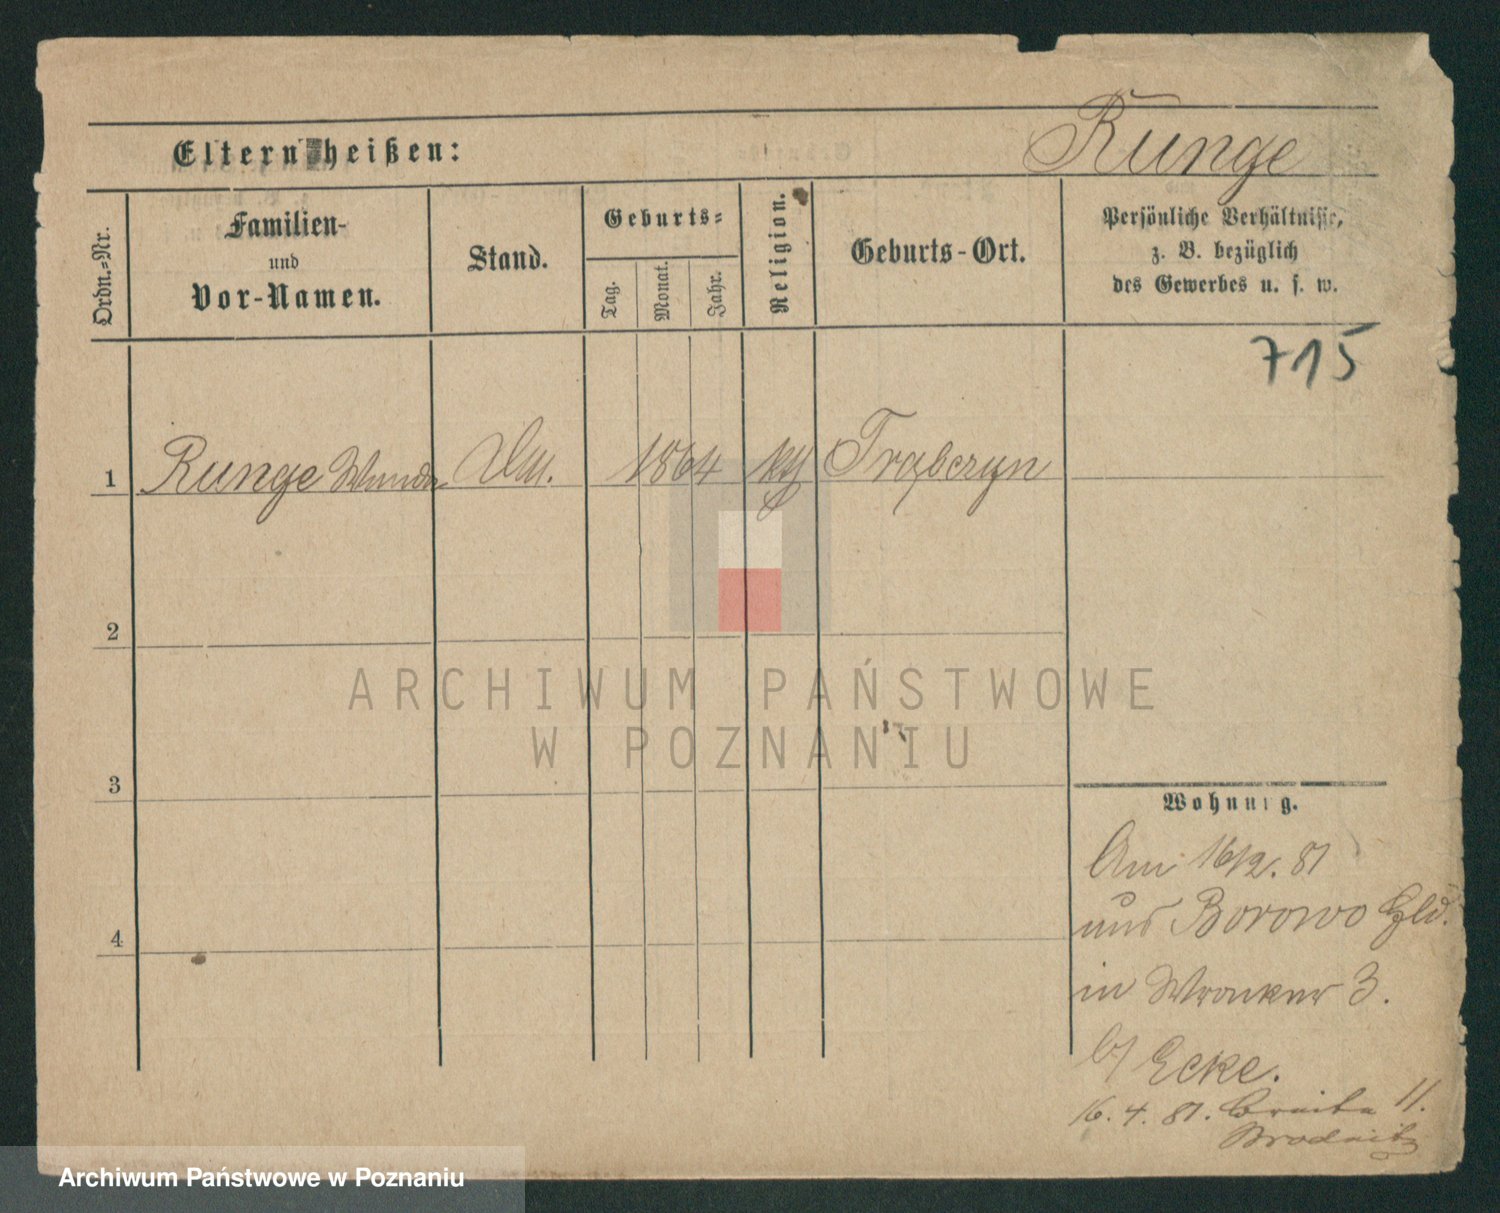 Eltern heißen:
Runge
Ordn.-Nr.
Familien-
und
Vor-Namen.
Stand.
Geburts-
Tag.
Monat.
Jahr.
Religion.
Geburts-Ort.
Persönliche Verhältnisse,
z. B. bezüglich
des Gewerbes u. s. w.
715
1 Runge Wanda 1864 Trąbczyn
2
3
4
Wohnung.
Am 16/2. 81
aus Borowo
in Wronker 3.
b/ Ecke.
16. 4. 81. Breite 11.
ARCHIWUM PAŃSTWOWE
W POZNANIU
Archiwum Państwowe w Poznaniu